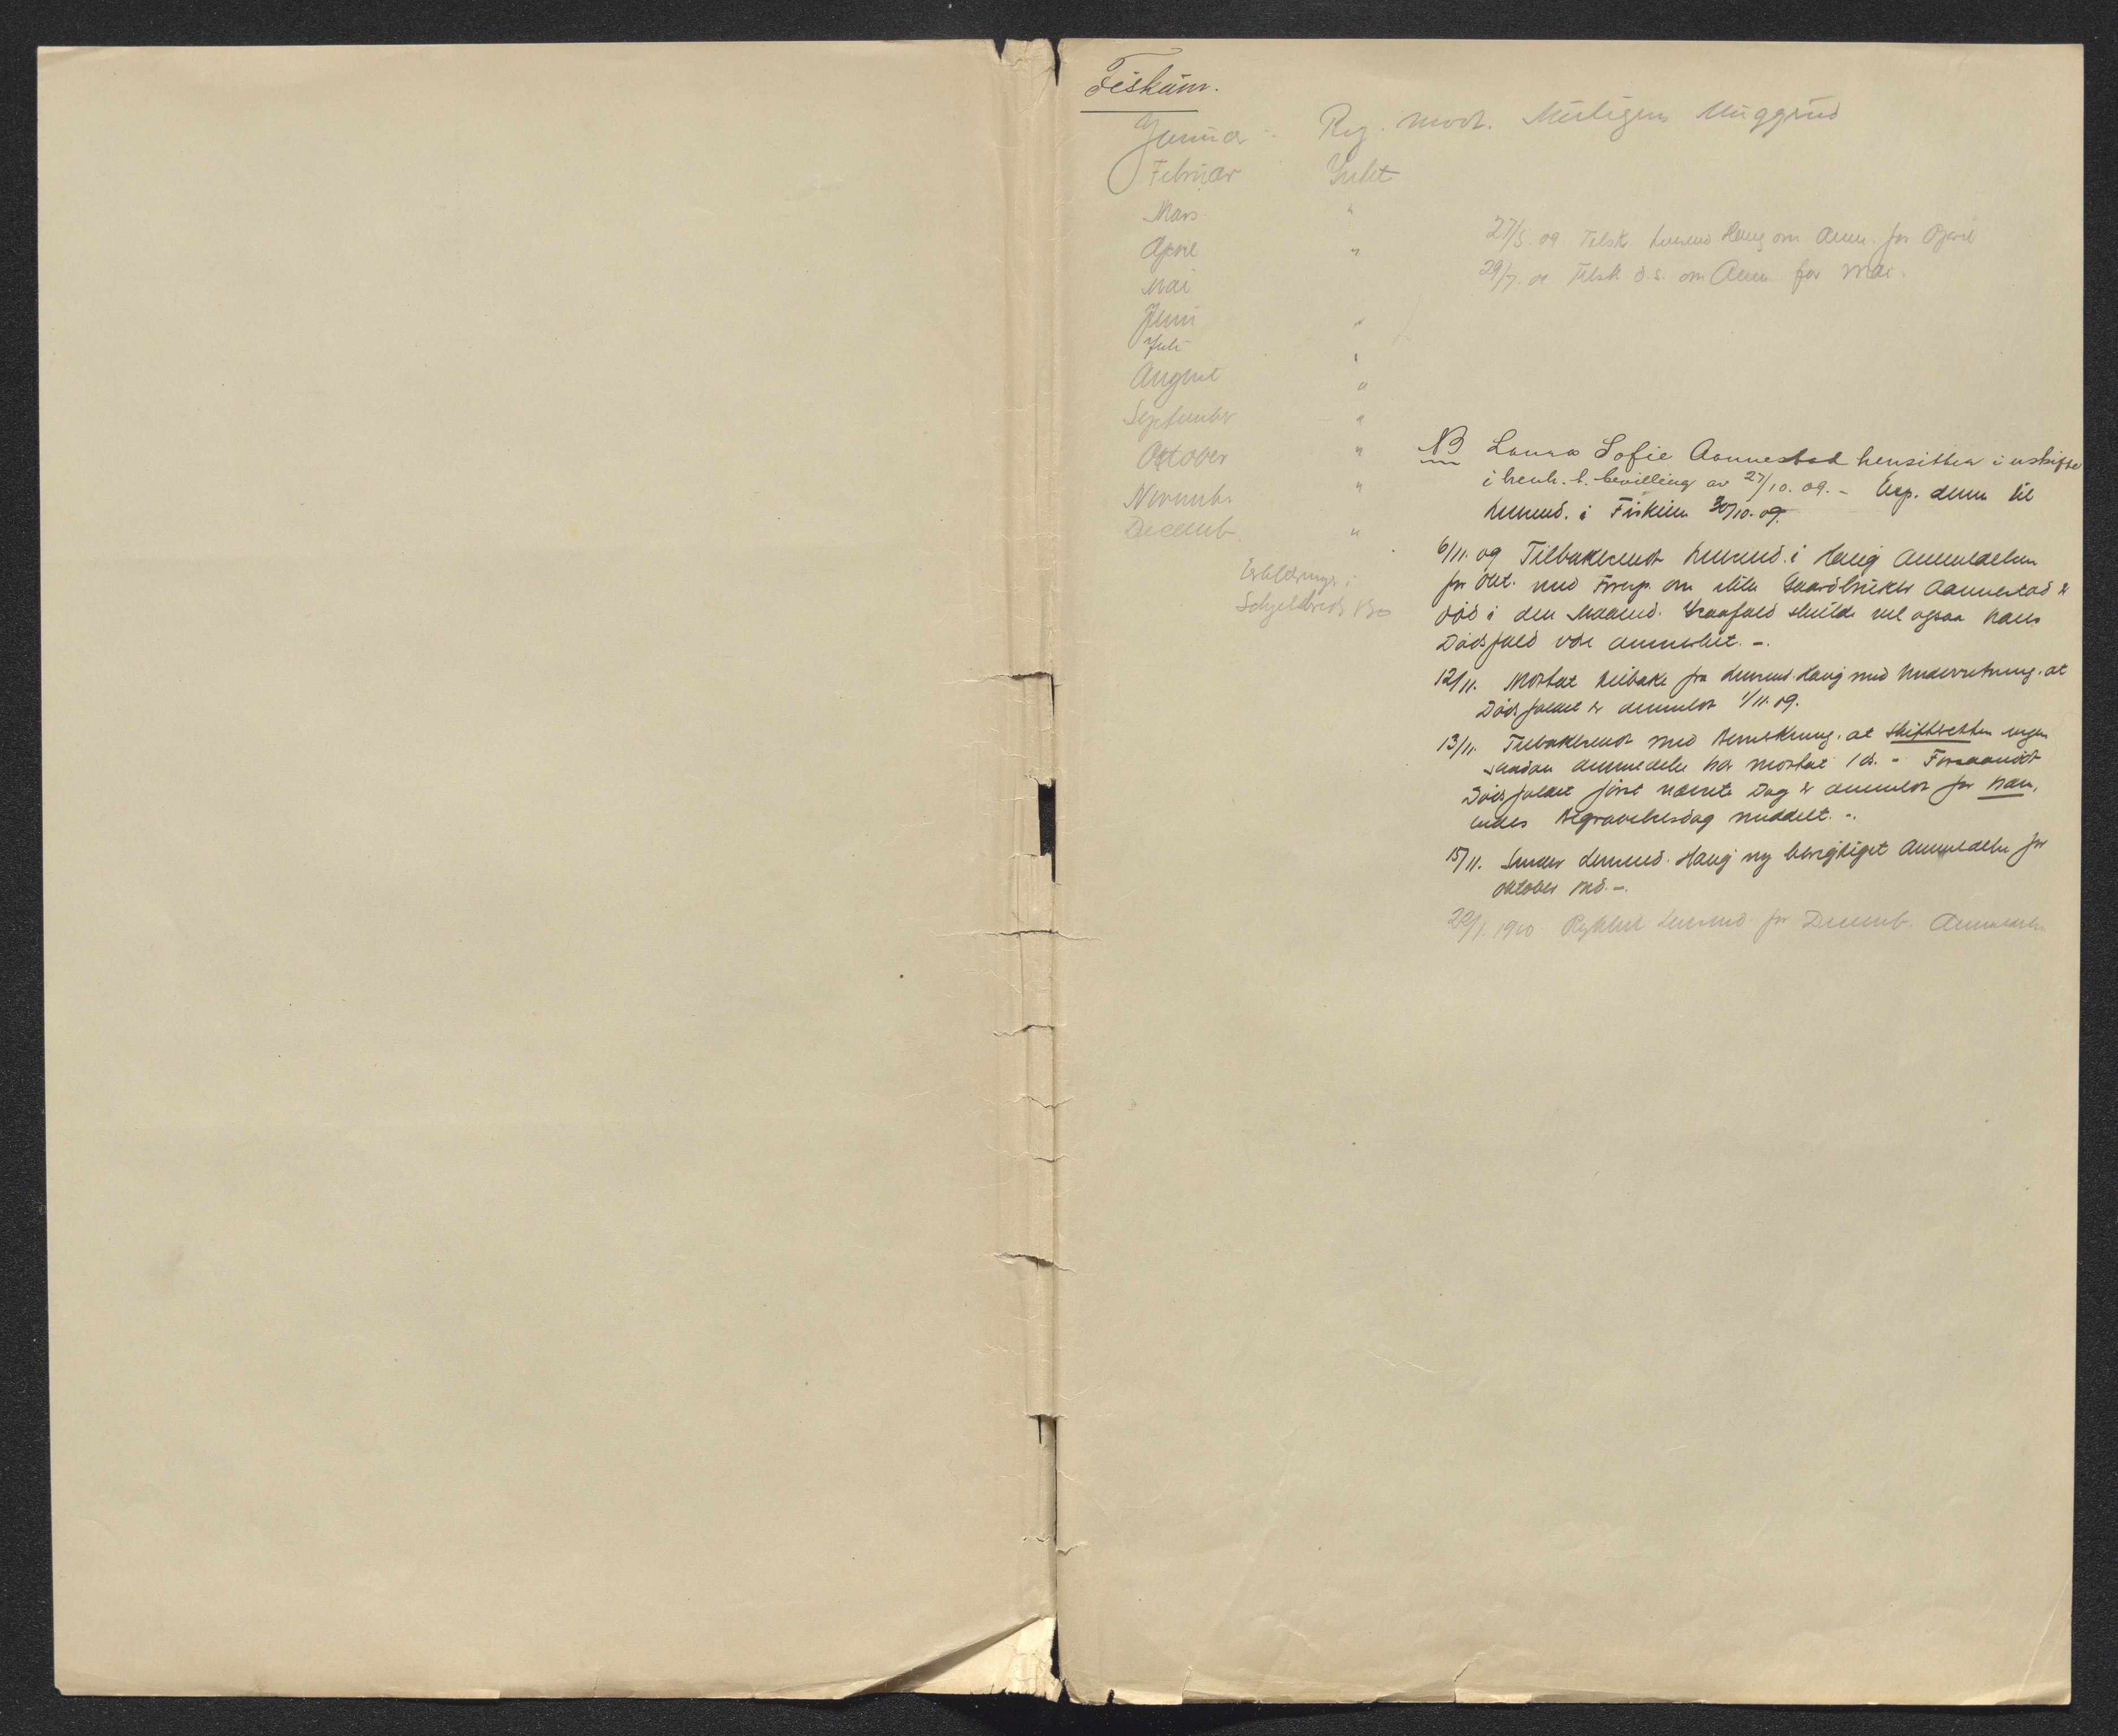 Fiskum.
Januar - Reg. modt. Muligens Muggrud
Februar Intet
Mars "
April "
27/5. 09 Tilsk. Lensmd Haug om Anm. for April
Mai
29/7. 09 Tilsk. d.s. om Anm. for Mai.
Juni "
Juli "
August "
September - "
Oktober "
Novembr. "
Decemb. "
NB Laura Sofie Aannestad hensitter i uskifte
i henh. t. bevilling av 27/10. 09. - Exp. denne til
Lensmd. i Fiskum 30/10. 09.
6/11. 09 Tilbakesendt Lensmd. i Haug Anmeldelsen
for Okt. med Foresp. om ikke Gaardbruker Aannestad er
død i den Maaned. I saafald skulde vel ogsaa hans
Dødsfald være anmerket. -.
12/11. Mottat tilbake fra Lensmd. Haug med Underretning, at
Dødsfaldet er anmeldt 1/11. 09.
13/11. Tilbakesendt med Bemerkning, at Skifteretten ingen
saadan anmeldelse har mottat 1 ds. - Forsaavidt
Dødsfaldet først næste Dag er anmeldt for ham,
Begravelsesdag meddelt. -.
15/11. Sender Lensmd. Haug ny berigtiget Anmeldelse for
Oktober Md. -.
22/1. 1910 Rykket Lensmd. for Decemb. Anmeldelse
Erklæringer i
Schjeldreds Bo